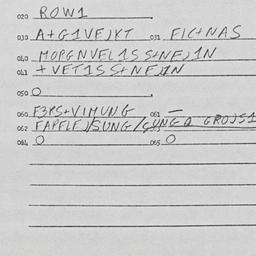 020 ROW1
030 A+G1VE)KT 031 FIC+NAS
040 MOPGNVEL1SS+NF)1N
041 +VET1SS+NF)1N
050 O
060 F3PS+VIMUNG 061 —
062 FAPFLE)SUNG/
064 O 065 O